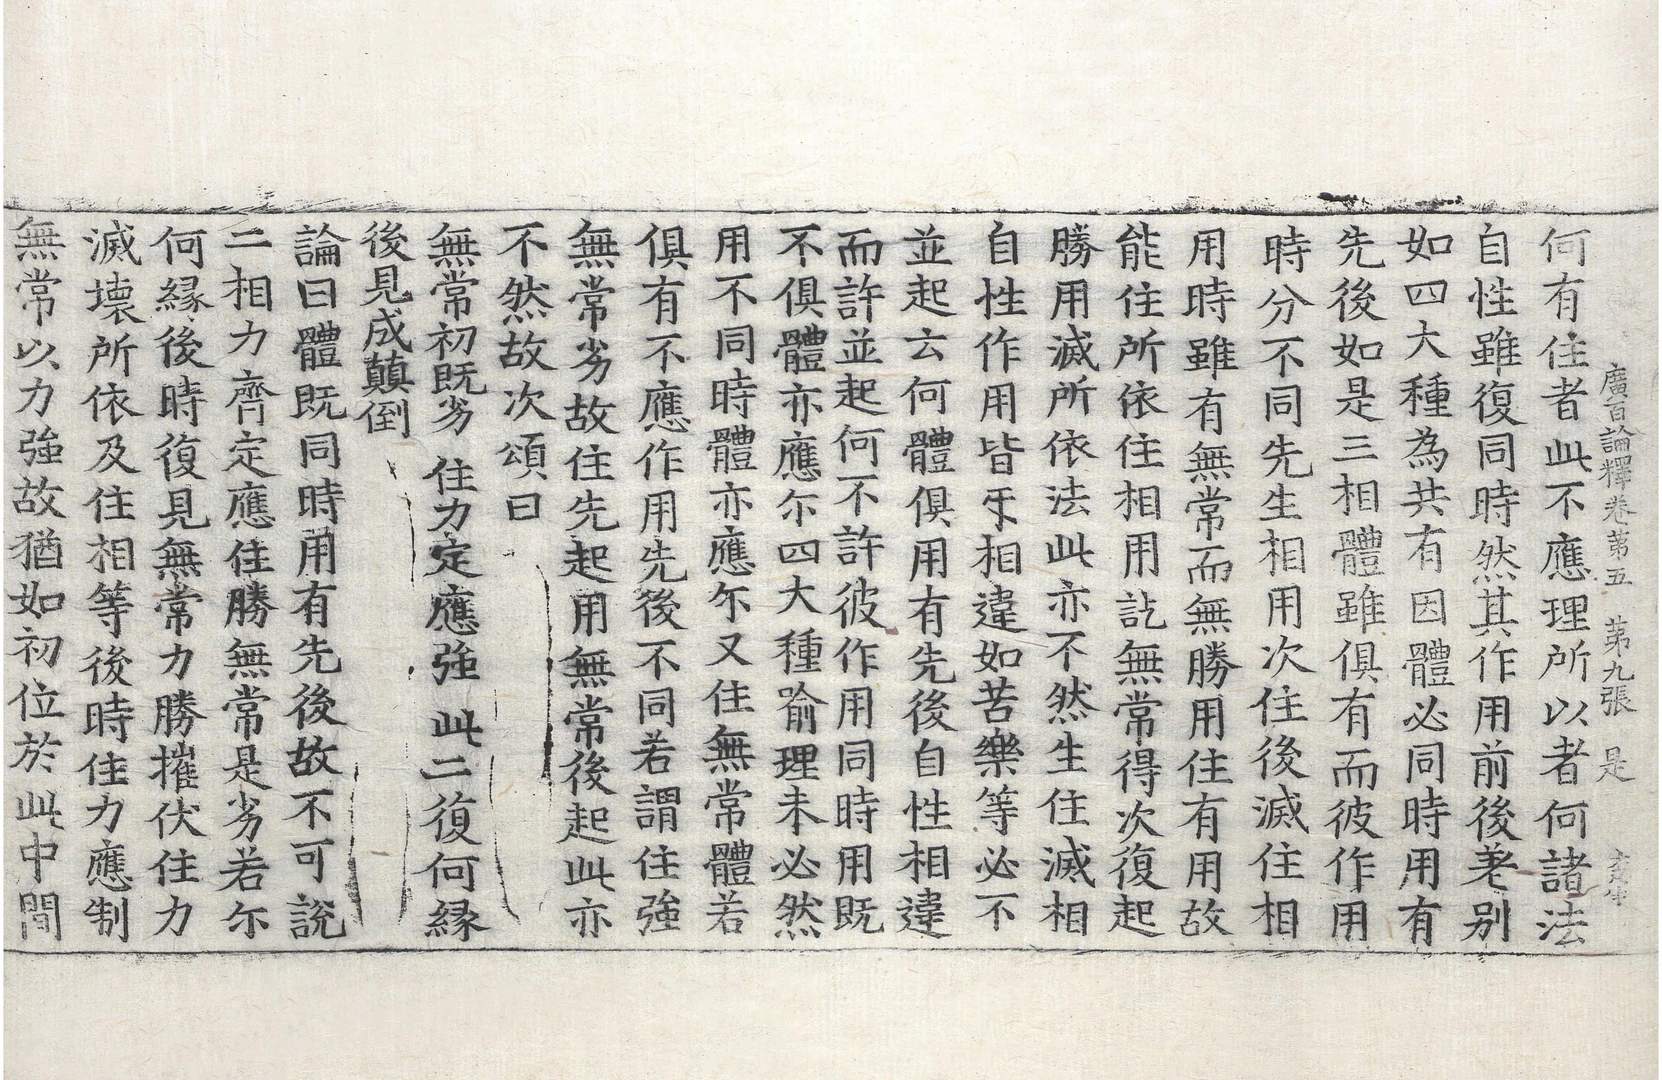 廣百論釋卷第五　第九張　是
何有住者此不應理所以者何諸法
自性雖復同時然其作用前後差別
如四大種為共有因體必同時用有
先後如是三相體雖俱有而彼作用
時分不同先生相用次住後滅住相
用時雖有無常而無勝用住有用故
能住所依住相用訖無常得次復起
勝用滅所依法此亦不然生住滅相
自性作用皆㸦相違如苦樂等必不
並起云何體俱用有先後自性相違
而許並起何不許彼作用同時用既
不俱體亦應尒四大種喻理未必然
用不同時體亦應尒又住無常體若
俱有不應作用先後不同若謂住強
無常劣故住先起用無常後起此亦
不然故次頌曰
無常初既劣　住力定應強　此二復何緣
後見成顛倒
論曰體既同時用有先後故不可說
二相力齊定應住勝無常是劣若尒
何緣後時復見無常力勝摧伏住力
滅壞所依及住相等後時住力應制
無常以力強故猶如初位於此中間